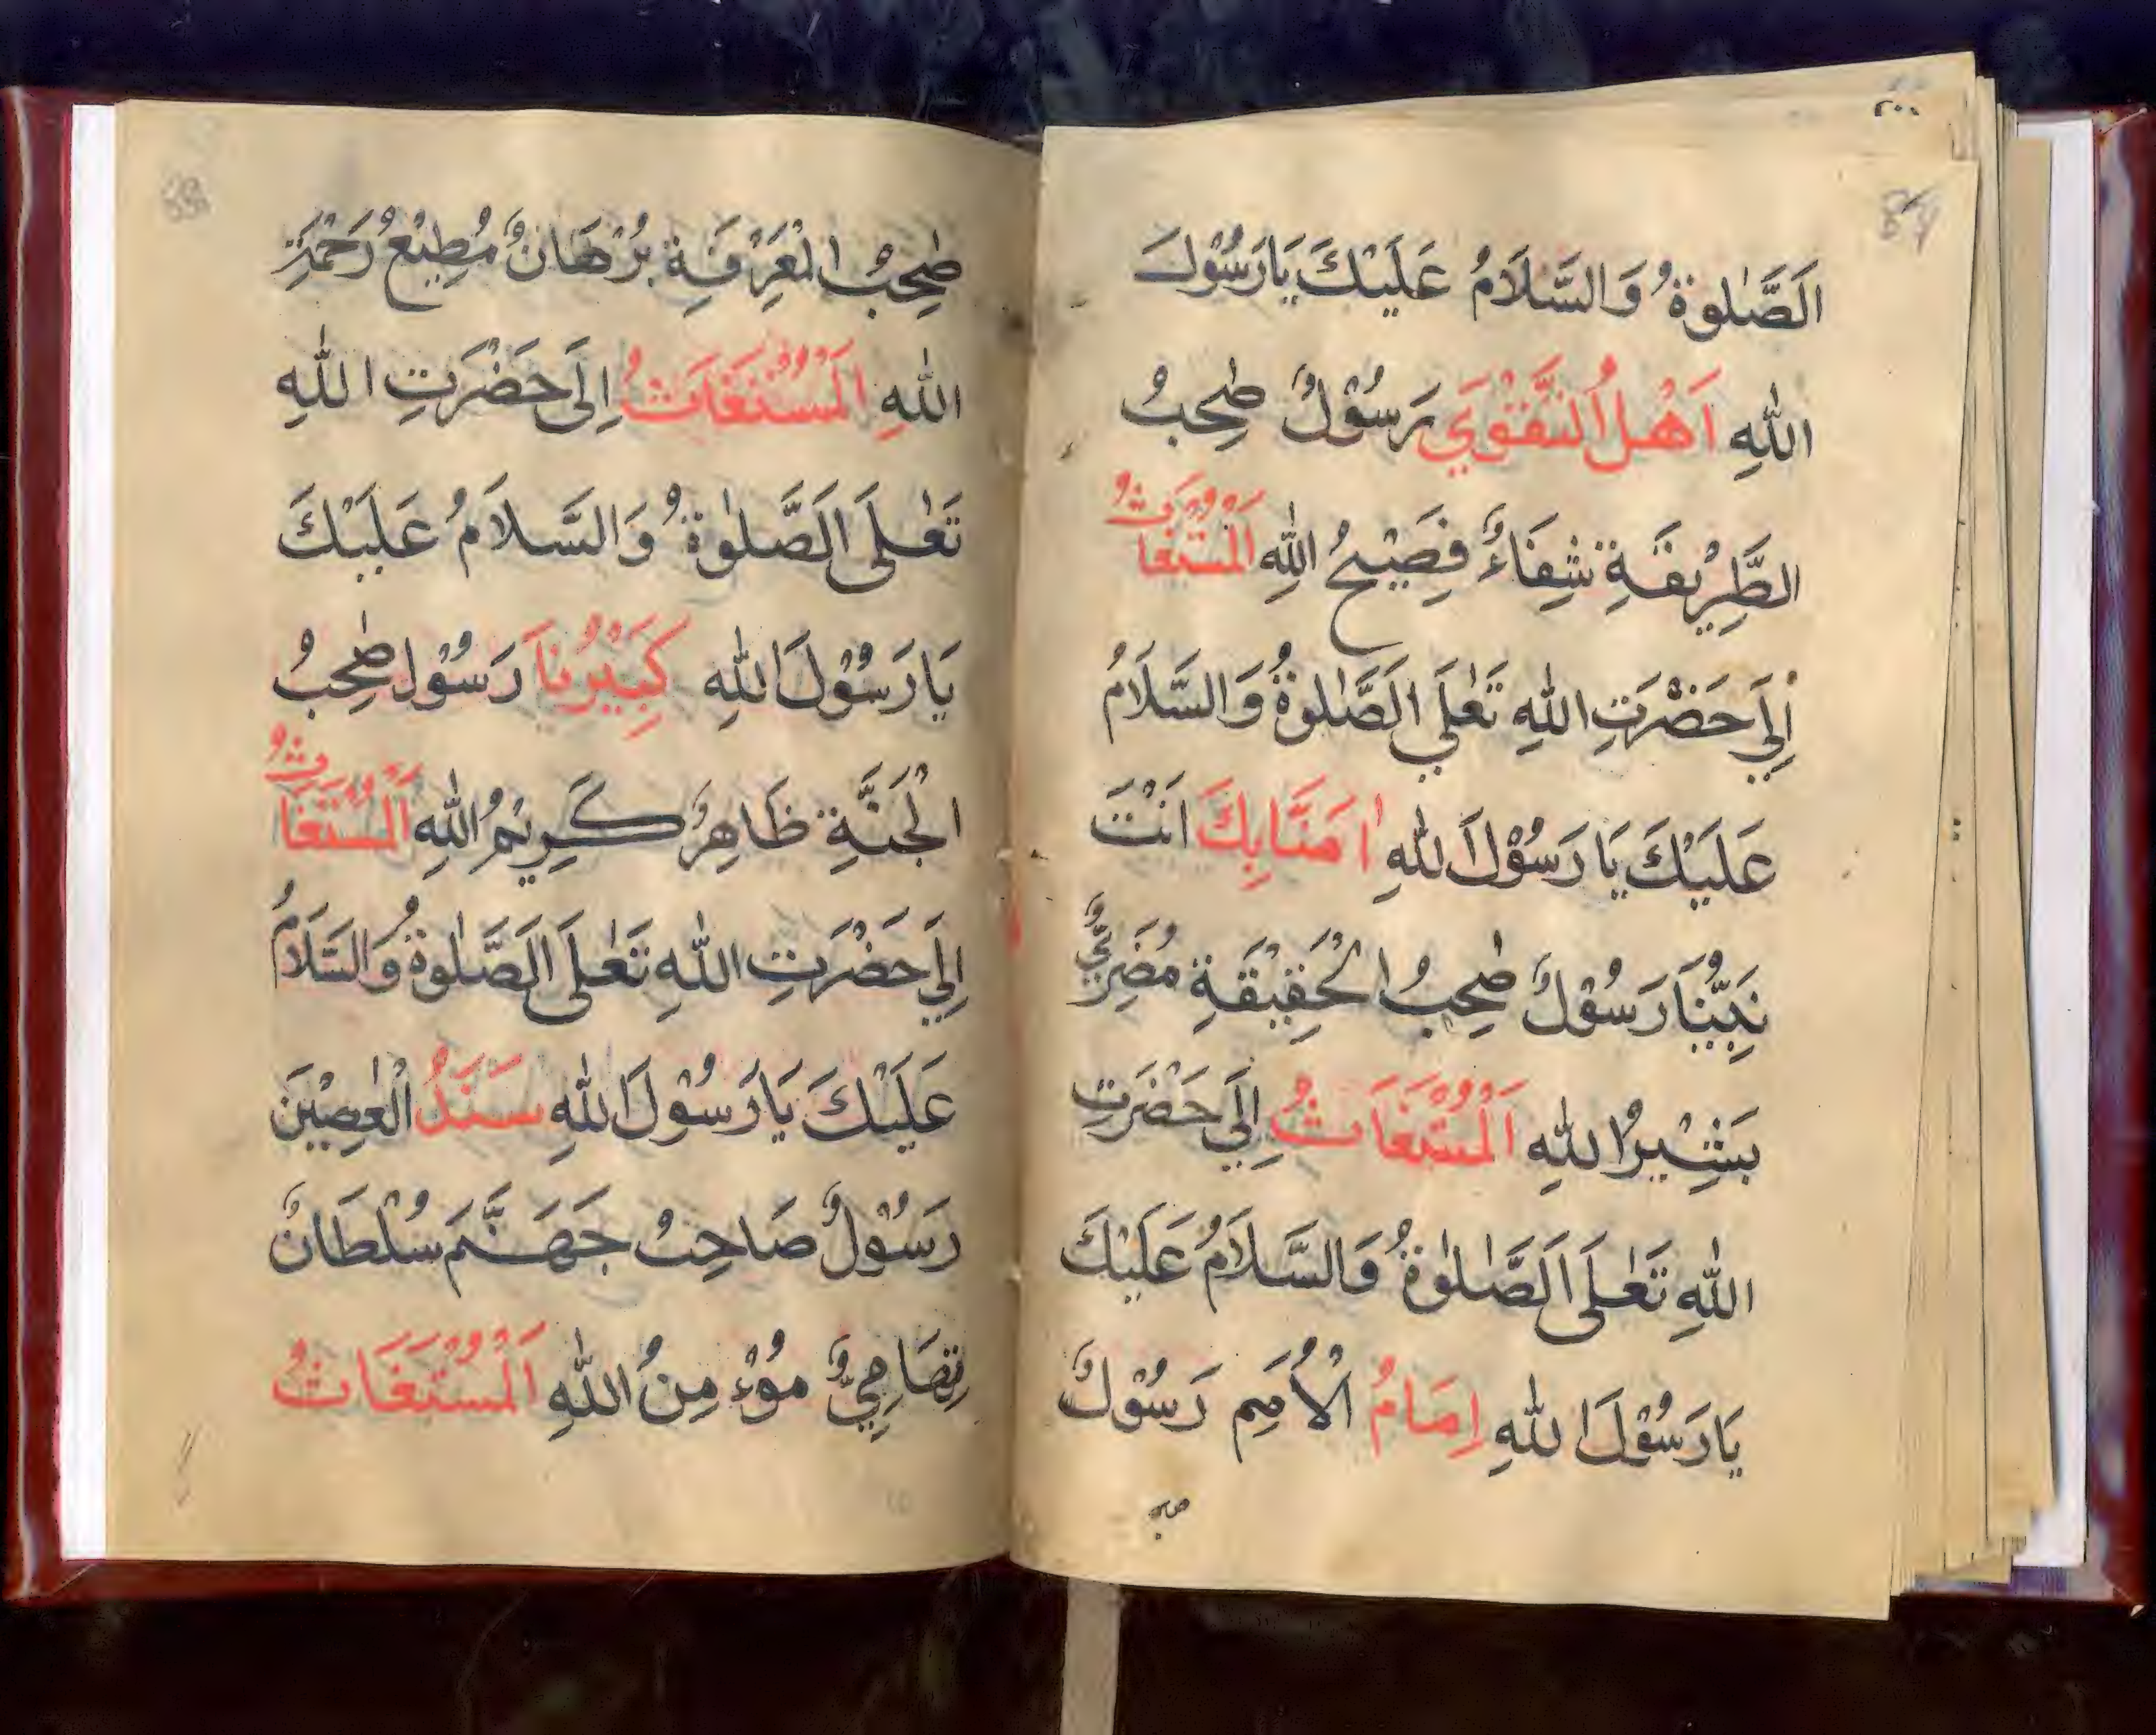 ٢٠٠
اَلصَّلٰوةُ وَالسَّلَامُ عَلَيْكَ يَارَسُوْلَ
اللّٰهِ اَهْلُ التَّقْوَي رَسُوْلٌ صٰحِبُ
الطَّرِيْقَةِ شِفَاءٌ فَصِيْحُ اللّٰهِ اَلْمُسْتَغَاثُ
اِلَيٰ حَضْرَتِ اللّٰهِ تَعٰلَي اَلصَّلٰوةُ وَالسَّلَامُ
عَلَيْكَ يَا رَسُوْلَ اللّٰهِ اٰمَنَّا بِكَ اَنْتَ
نَبِيُّنَا رَسُوْلٌ صٰحِبُ الْحَقِيْقَةِ مُضَرِيٌّ
بَشِيْرُ اللّٰهِ اَلْمُسْتَغَاثُ اِلَيٰ حَضْرَتِ
اللّٰهِ تَعٰلَى اَلصَّلٰوةُ وَالسَّلَامُ عَلَيْكَ
يَارَسُوْلَ اللّٰهِ اِمَامُ الْاُمَمِ رَسُوْلٌ
صٰحِبُ الْمَعْرِفَةِ بُرْهَانٌ مُطِيْعُ رَحْمَةِ
اللّٰهِ اَلْمُسْتَغَاثُ اِلَى حَضْرَتِ اللّٰهِ
تَعٰلَى اَلصَّلٰوةُ وَالسَّلَامُ عَلَيْكَ
يَا رَسُوْلَ اللّٰهِ كَبِيْرُنَا رَسُوْل صٰحِبُ
الْجَنَّةِ ظَاهِرٌ كَرِيْمُ اللّٰهِ اَلْمُسْتَغَاثُ
اِلَيٰ حَضْرَتِ اللّٰهِ تَعٰلَى اَلصَّلٰوةُ وَالسَّلَامُ
عَلَيْكَ يَارَسُوْلَ اللّٰهِ سَنَدُ الْعٰصِيْنَ
رَسُوْلٌ صَاحِبُ جَهَنَّمَ سُلْطَانٌ
تِهَامِيٌّ مُوْءمِنُ اللّٰهِ اَلْمُسْتَغَاثُ